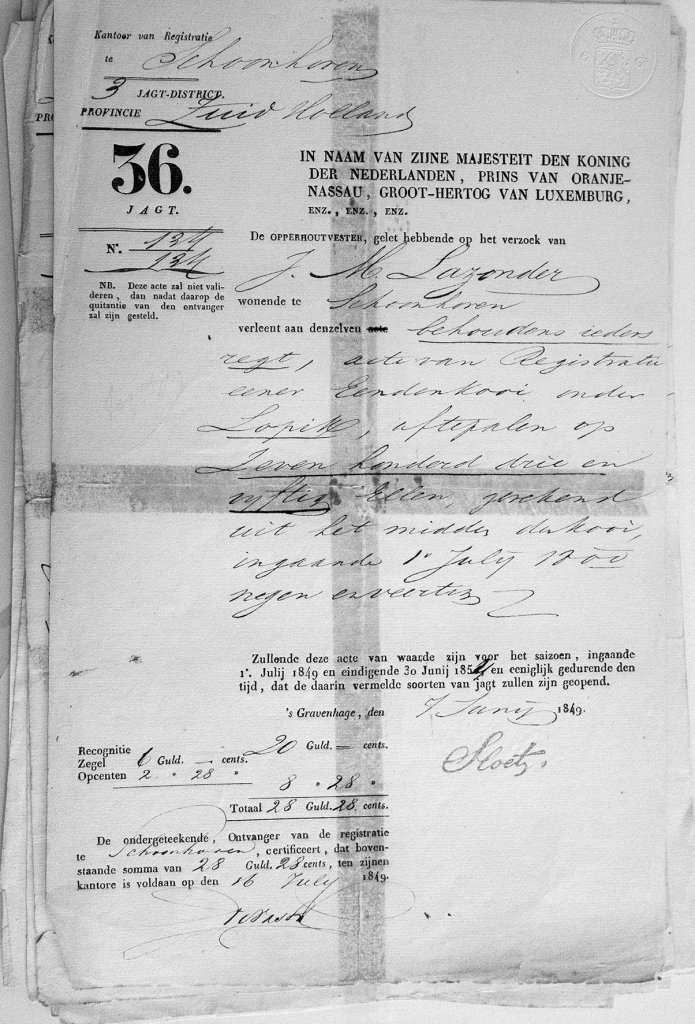 Kantoor van Registratie
te Schoonhoven
3 JAGT-DISTRICT.
PROVINCIE Zuid Holland
36.
JAGT.
N°. 134
134
NB. Deze acte zal niet vali-
deren, dan nadat daarop de
quitantie van den ontvanger
zal zijn gesteld.
IN NAAM VAN ZIJNE MAJESTEIT DEN KONING
DER NEDERLANDEN, PRINS VAN ORANJE-
NASSAU, GROOT-HERTOG VAN LUXEMBURG,
ENZ., ENZ., ENZ.
De OPPERHOUTVESTER, gelet hebbende op het verzoek van
J. M. Lazonder
wonende te Schoonhoven
verleent aan denzelven acte behoudens ieders
regt, acte van Registratie
eener Eendenkooi onder
Lopik, aftepalen op
Zeven honderd drie en
vyftig Ellen, gerekend
uit het midden der kooi,
ingaande 1e July 1800
negen en veertig
Zullende deze acte van waarde zijn voor het saizoen, ingaande
1°. Julij 1849 en eindigende 30 Junij 185 en eeniglijk gedurende den
tijd, dat de daarin vermelde soorten van jagt zullen zijn geopend.
's Gravenhage, den 7 Junij 1849.
Recognitie 20 Guld. — cents.
Zegel 6 Guld. — cents.
Opcenten 2 " 28 "
8 " 28 "
Totaal 28 Guld. 28 cents.
De ondergeteekende, Ontvanger van de registratie
te Schoonhoven, certificeert, dat boven-
staande somma van 28 Guld. 28 cents, ten zijnen
kantore is voldaan op den 16 July 1849.